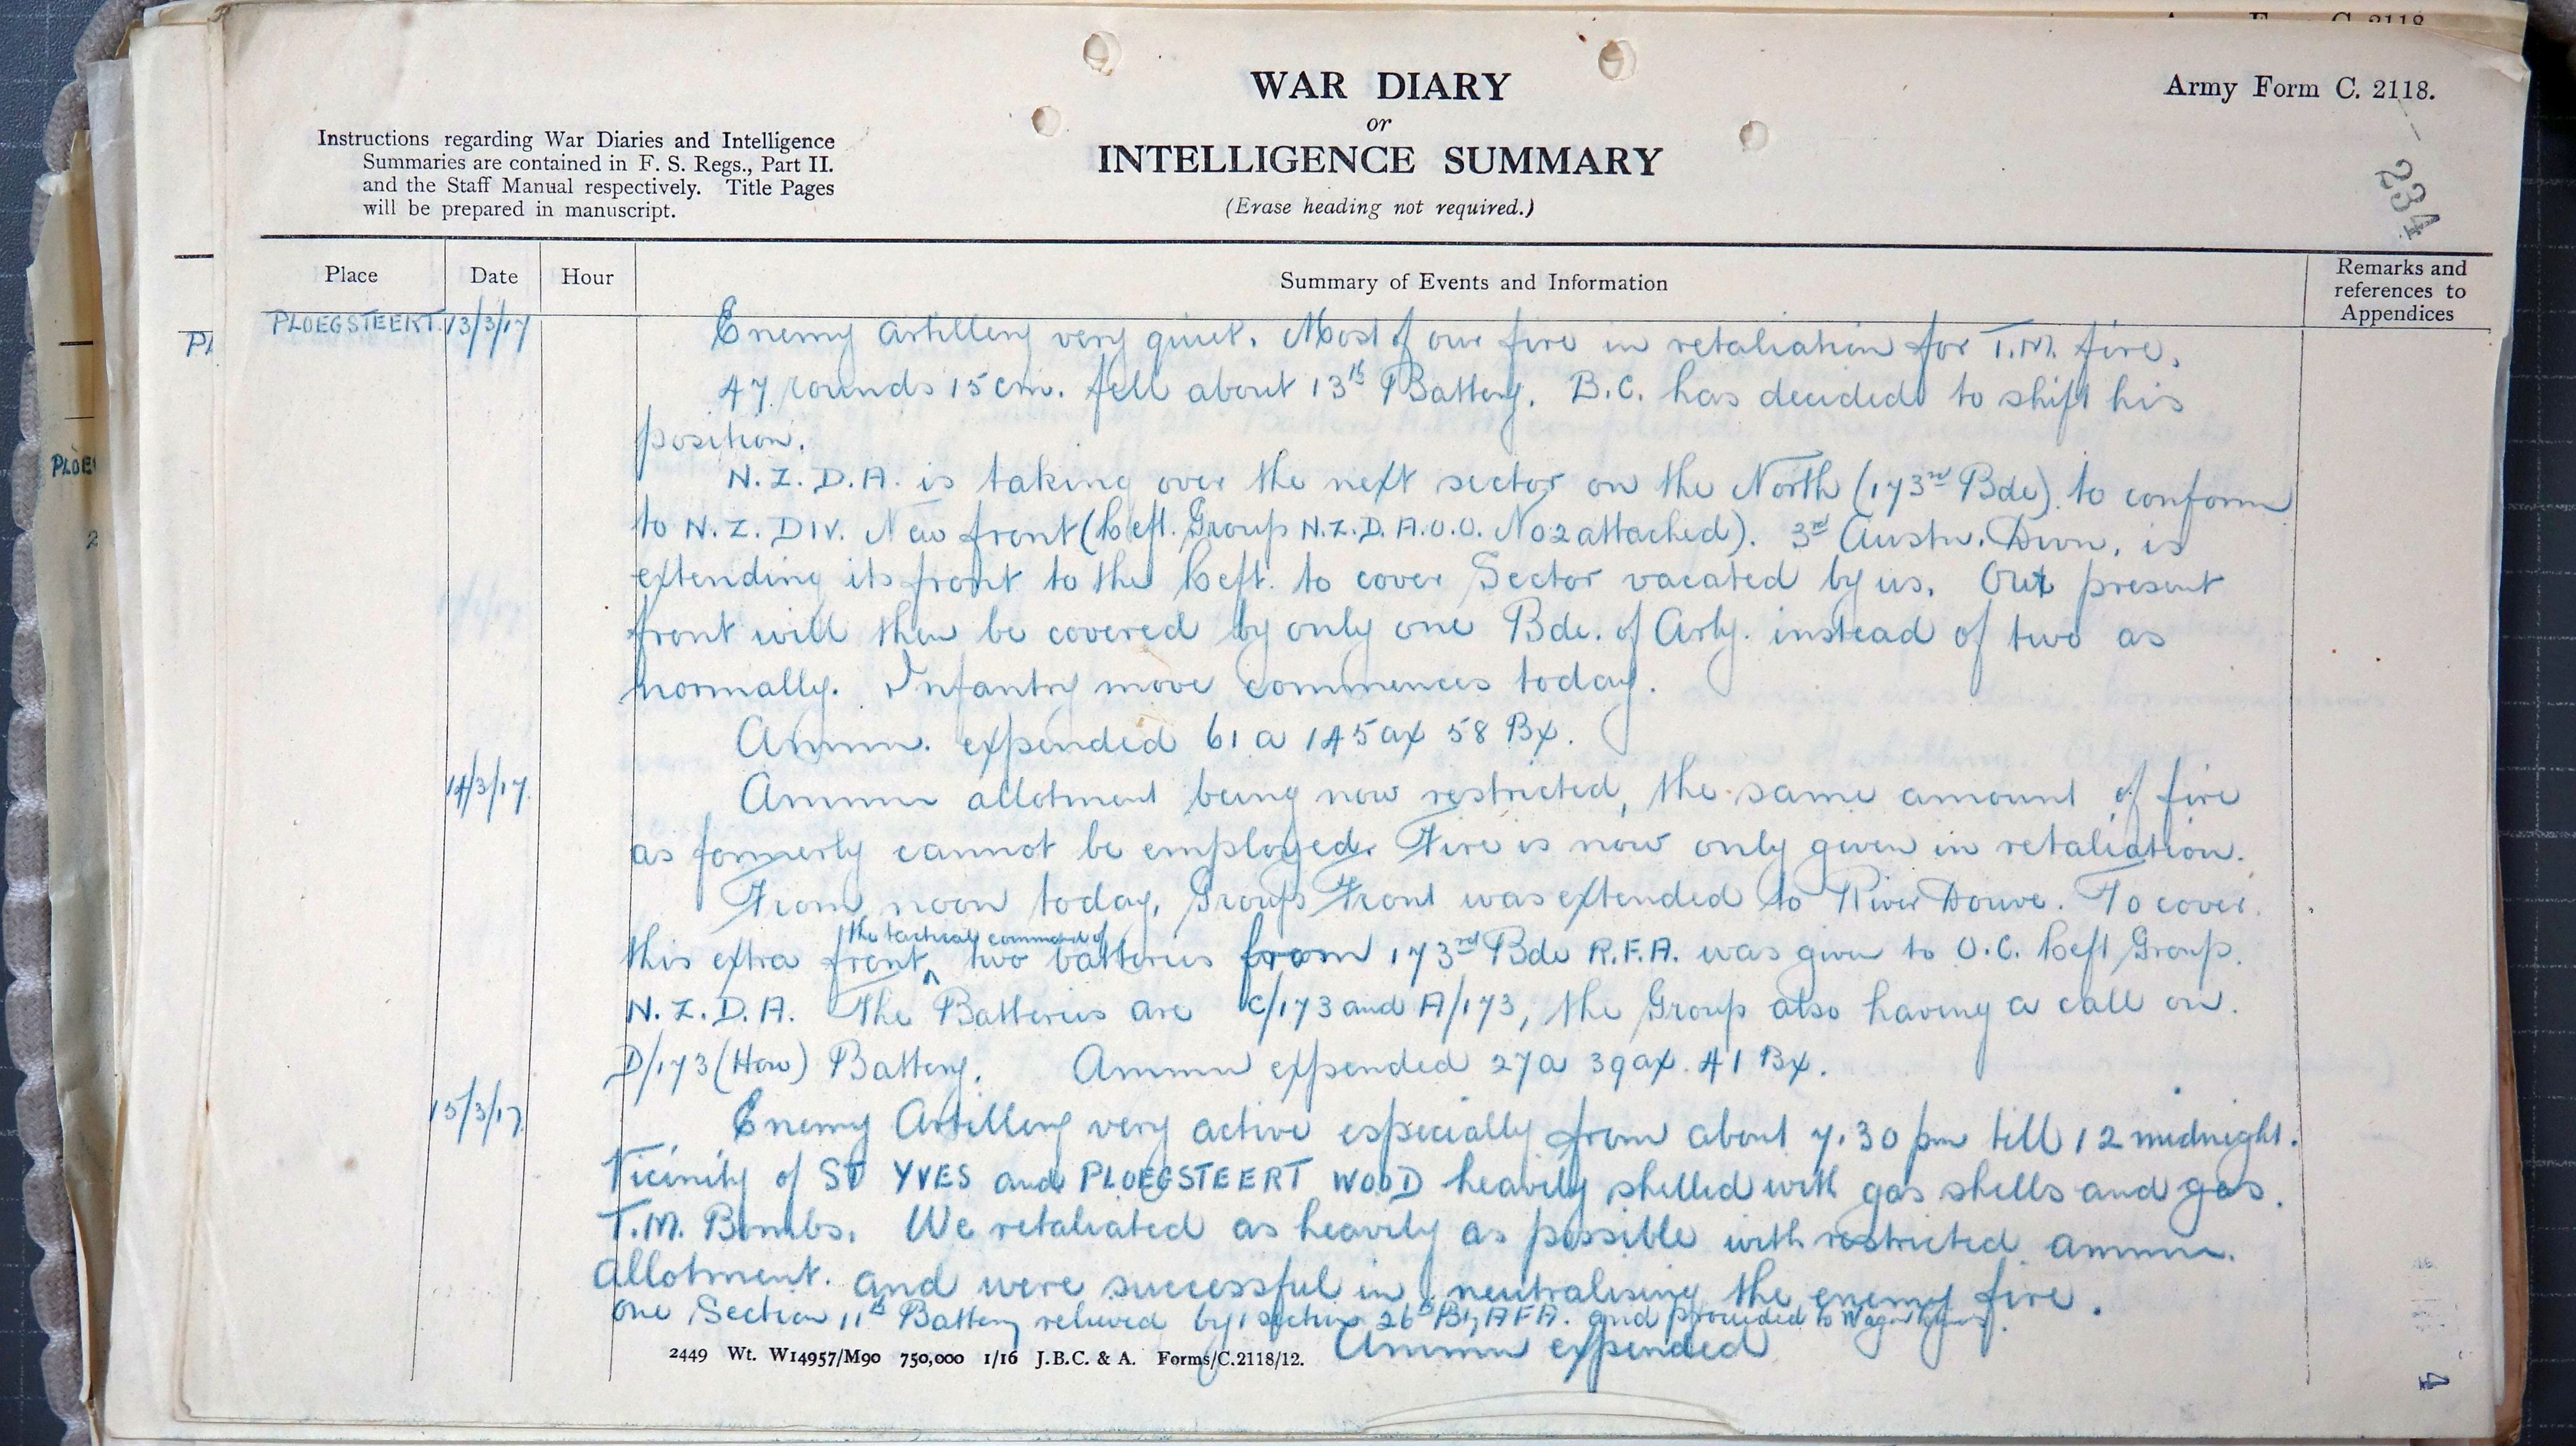 Army Form C. 2118.
WAR DIARY
or
INTELLIGENCE SUMMARY
(Erase heading not required.)
Instructions regarding War Diaries and Intelligence
Summaries are contained in F. S. Regs., Part II.
and the Staff Manual respectively. Title Pages
will be prepared in manuscript.
234
Place Date Hour Summary of Events and Information Remarks and
references to
Appendices
PLOEGSTEERT. 13/3/17 Enemy artillery very quiet. Most of our fire in retaliation for T.M. fire.
47 rounds 15 cm. fell about 13th Battery. B.C. has decided to shift his
position.
N.Z.D.A. is taking over the next sector on the North (173rd Bde) to conform
to N.Z. DIV. New front (Left. Group N.Z.D.A.O.O. No 2 attached). 3rd Austn. Divn. is
extending its front to the left. to cover Sector vacated by us. Our present
front will then be covered by only one Bde. of Arty. instead of two as
normally. Infantry move commences today.
Ammn. expended 61 a 145 ax 58 Bx.
14/3/17. Ammn allotment being now restricted, the same amount of fire
as formerly cannot be employed. Fire is now only given in retaliation.
From noon today, Groups Front was extended to River Douve. To cover
this extra front ^ the tactical command of two batteries from 173rd Bde R.F.A. was given to O.C. Left Group.
N.Z.D.A. The Batteries are C/173 and A/173, the Group also having a call on
D/173 (How) Battery. Ammn expended 27a 39ax. 41 Bx.
15/3/17 Enemy Artillery very active especially from about 7.30 pm till 12 midnight.
Vicinity of ST YVES and PLOEGSTEERT WOOD heavily shelled with gas shells and gas
T.M. Bombs. We retaliated as heavily as possible with restricted ammn.
allotment. and were successful in neutralising the enemy fire.
One Section 11th Battery relieved by 1 section 26th By, AFA. and proceeded to Wagon
Ammn expended
2449 Wt. W14957/M90 750,000 1/16 J.B.C. & A. Forms/C.2118/12.
4